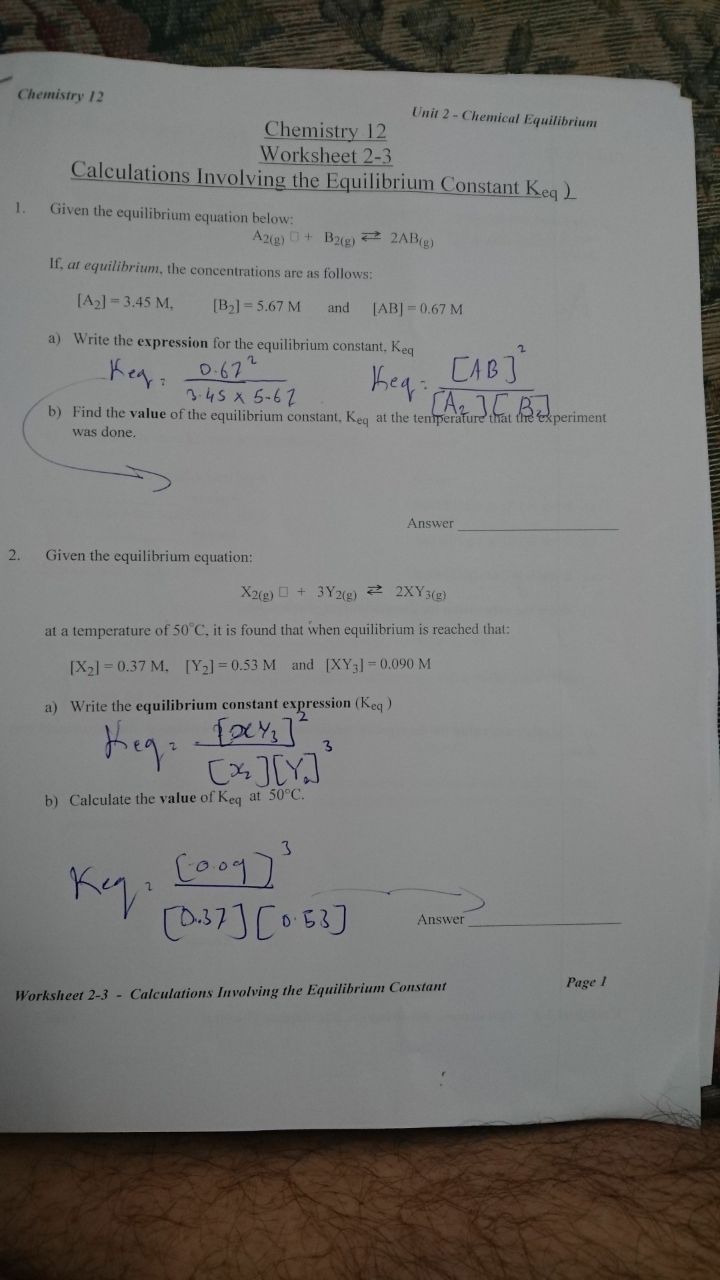 Chemistry 12
Unit 2 - Chemical Equilibrium
Chemistry 12
Worksheet 2-3
Calculations Involving the Equilibrium Constant Keq )
1. Given the equilibrium equation below:
A2(g) □ + B2(g) ⇄ 2AB(g)
If, at equilibrium, the concentrations are as follows:
[A2] = 3.45 M, [B2] = 5.67 M and [AB] = 0.67 M
a) Write the expression for the equilibrium constant, Keq
Keq = 0.67² / 3.45 x 5.67 Keq = [AB]² / [A2][B2]
b) Find the value of the equilibrium constant, Keq at the temperature that the experiment
was done.
Answer
2. Given the equilibrium equation:
X2(g) □ + 3Y2(g) ⇄ 2XY3(g)
at a temperature of 50°C, it is found that when equilibrium is reached that:
[X2] = 0.37 M, [Y2] = 0.53 M and [XY3] = 0.090 M
a) Write the equilibrium constant expression (Keq )
Keq = [XY3]² / [X2][Y2]³
b) Calculate the value of Keq at 50°C.
Keq = [0.09]³ / [0.37][0.53]
Answer
Worksheet 2-3 - Calculations Involving the Equilibrium Constant
Page 1